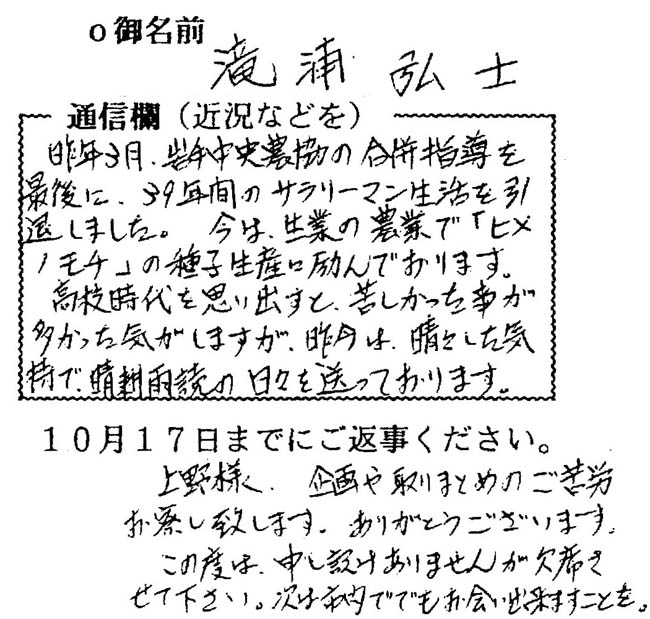 o御名前
滝浦 弘士
通信欄（近況などを）
昨年3月、岩手中央農協の合併指導を
最後に、39年間のサラリーマン生活を引
退しました。 今は、生業の農業で「ヒメ
ノモチ」の種子生産に励んでおります。
高校時代を思い出すと、苦しかった事が
多かった気がしますが、昨今は、晴々した気
持で、晴耕雨読の日々を送っております。
10月17日までにご返事ください。
上野様、企画や取りまとめのご苦労
お察し致します。ありがとうございます。
この度は、申し訳ありませんが欠席さ
せて下さい。次は市内ででもお会い出来ますことを。